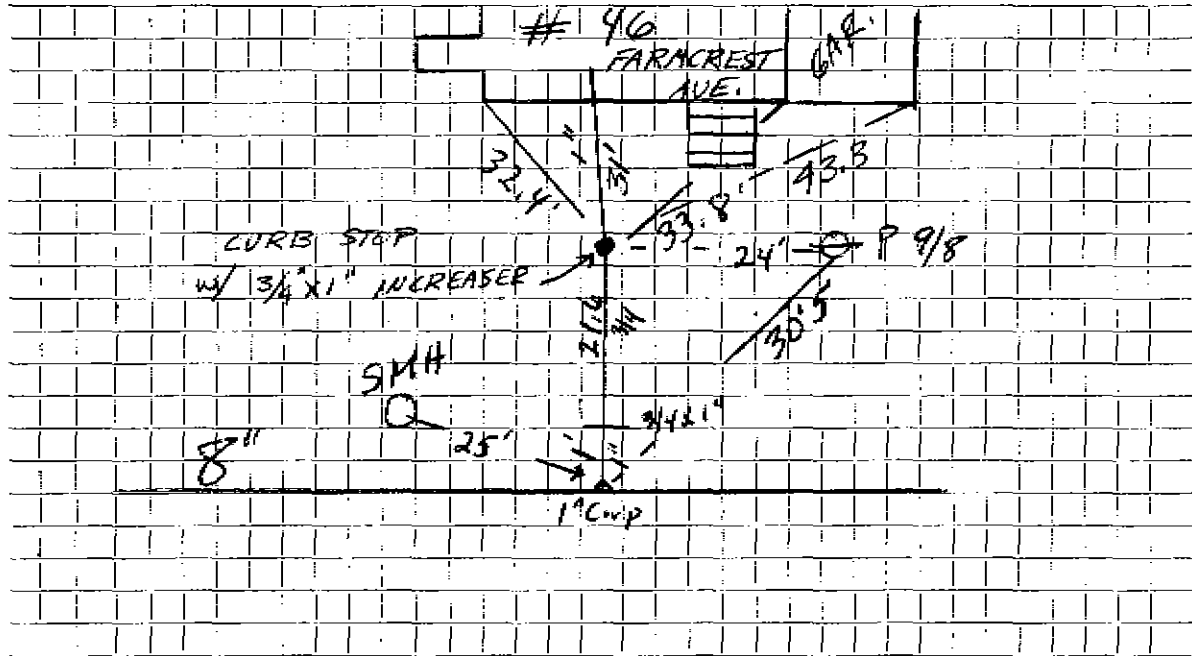 # 46
FARMCREST
AVE.
GAR.
32.4'
1"
31'
33.8'
43.3
CURB STOP
w/ 3/4"x1" INCREASER
24'
P 9/8
21.6
3/4
30'5
SMH
25'
3/4x1"
8"
1' 1"
1" Corp